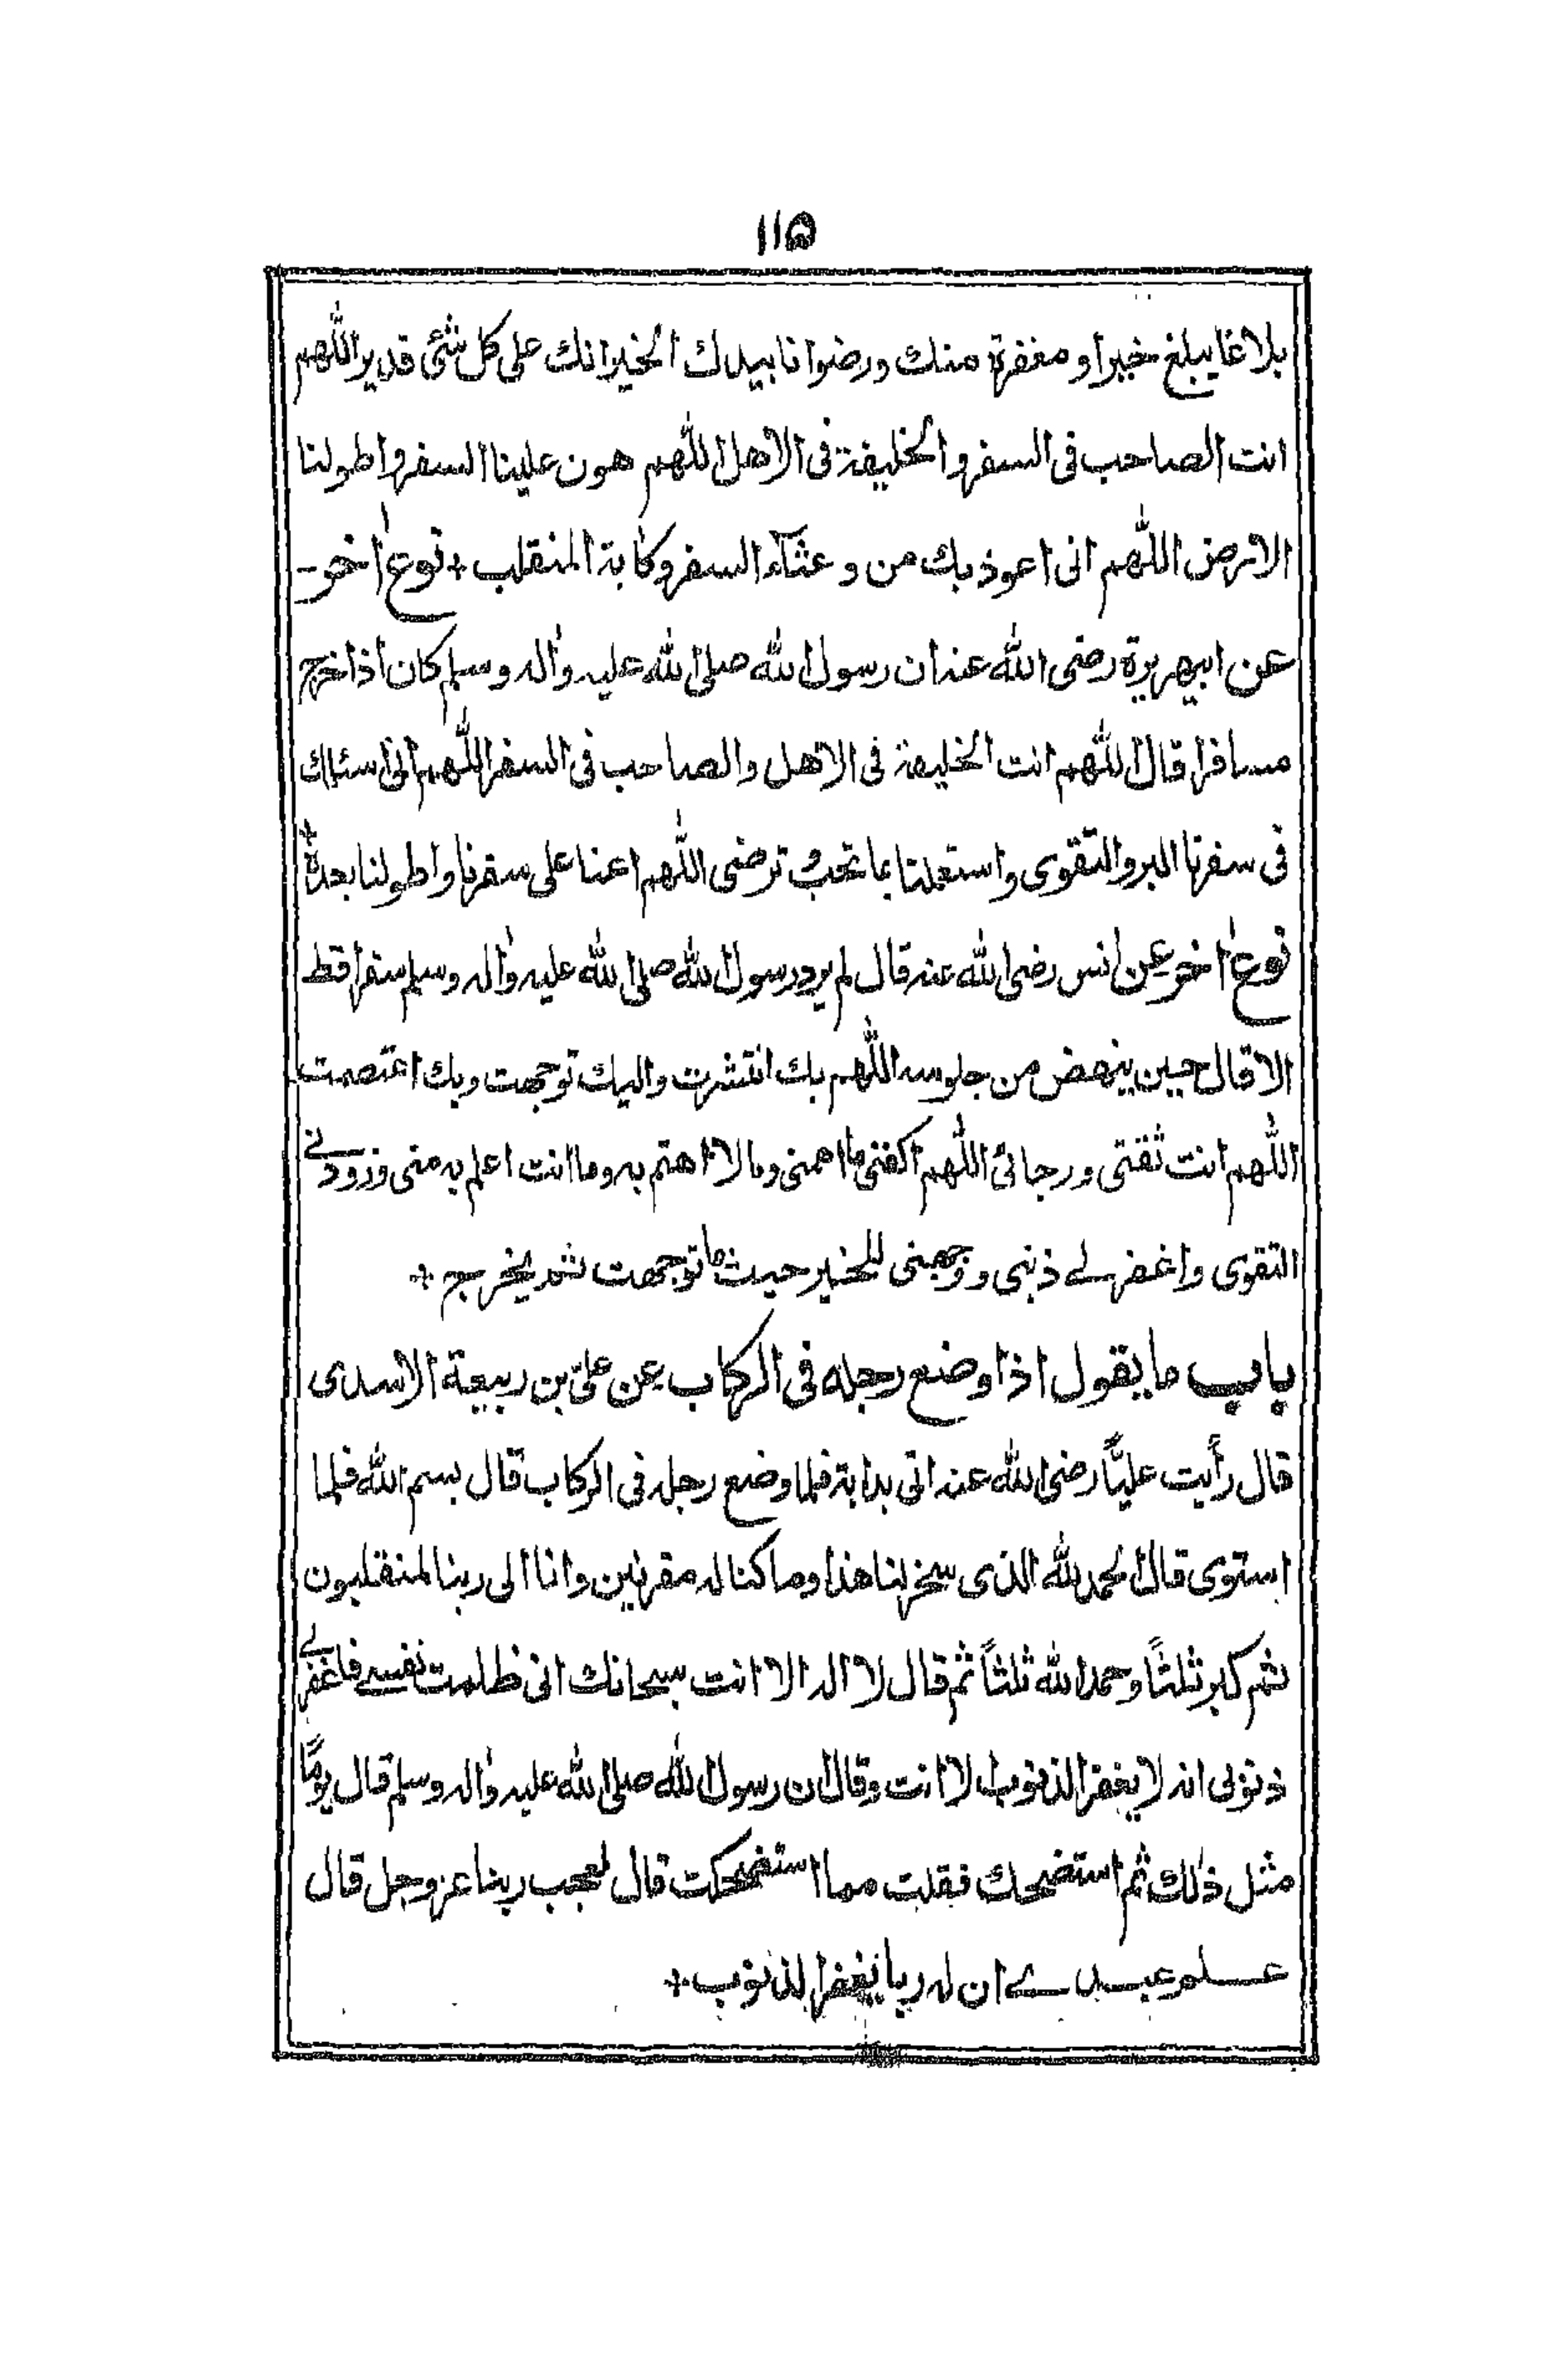 ۱۱۵
بلاغا يبلغ خيرا و مغفرة منك ورضوانا بيدك الخير انك على كل شئ قدير اللهم
انت الصاحب فى السفر والخليفة فى الاهل اللهم هون علينا السفر واطو لنا
الارض اللهم انى اعوذ بك من وعثاء السفر وكابة المنقلب + نوع اخر -
عن ابيهريرة رضى الله عنه ان رسول الله صلى الله عليه واله وسلم كان اذا خرج
مسافرا قال اللهم انت الخليفة فى الاهل والصاحب فى السفر اللهم انى اسئلك
فى سفرنا البر والتقوى واستعملنا بما تحب وترضى اللهم اعنا على سفرنا واطو لنا بعده +
نوع اخر عن انس رضى الله عنه قال لم يرد رسول الله صلى الله عليه واله وسلم سفرا قط
الا قال حين ينهض من جلوسه اللهم بك انتشرت واليك توجهت وبك اعتصمت
اللهم انت ثقتى ورجائى اللهم اكفنى ما اهمنى وما لا اهتم به وما انت اعلم به منى وزودنے
التقوى واغفر لے ذنبى ووجهنى للخير حيث ما توجهت ثم يخرج +
باب ما يقول اذا وضع رجله فى الركاب عن علىّ بن ربيعة الاسدى
قال رأيت عليًّا رضى الله عنه اتى بدابة فلما وضع رجله فى الركاب قال بسم الله فلما
استوى قال الحمد لله الذى سخر لنا هذا وما كنا له مقرنين وانا الى ربنا لمنقلبون
ثم كبر ثلثًا وحمد الله ثلثاً ثم قال لا اله الا انت سبحانك انى ظلمت نفسے فاغفر لے
ذنوبى انه لا يغفر الذنوب الا انت وقال ان رسول الله صلى الله عليه واله وسلم قال يومًا
مثل ذلك ثم استضحك فقلت مما استضحكت قال لعجب ربنا عز وجل قال
علم عبدے ان له ربا يغفر الذنوب +